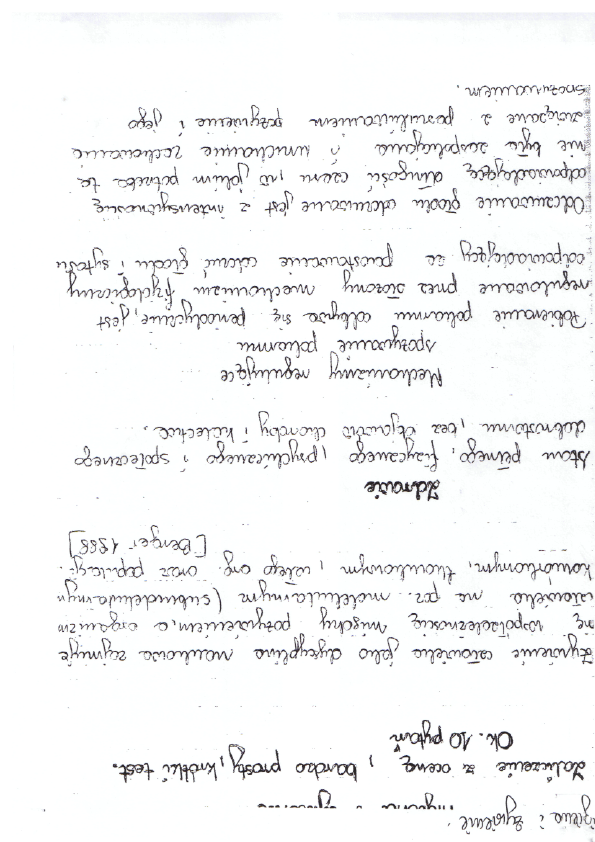 igiena i żywienie.
Zaliczenie z oceną, bardzo prosty, krótki test.
Ok. 10 pytań
Żywienie człowieka jako dyscyplina naukowa zajmuje
się współzależnością między pożywieniem, a organizm
człowieka na poz. molekularnym (submolekularnym
komórkowym, tkankowym, całego org. oraz populacji.
[Berger 1988]
Zdrowie
Stan pełnego, fizycznego, psychicznego i społecznego
dobrostanu, bez objawów choroby i kalectwa.
Mechanizmy regulujące
spożywanie pokarmu
Pobieranie pokarmu odbywa się periodycznie, jest
regulowane przez złożony mechanizm fizjologiczny
odpowiadający za powstawanie uczuć głodu i sytości
Odczuwanie głodu odczuwane jest z intensywnością
odpowiadającą długości czasu, w jakim potrzeba ta
nie była zaspokojona i uruchamia zachowanie
związane z poszukiwaniem pożywienia i jego
spożywaniem.